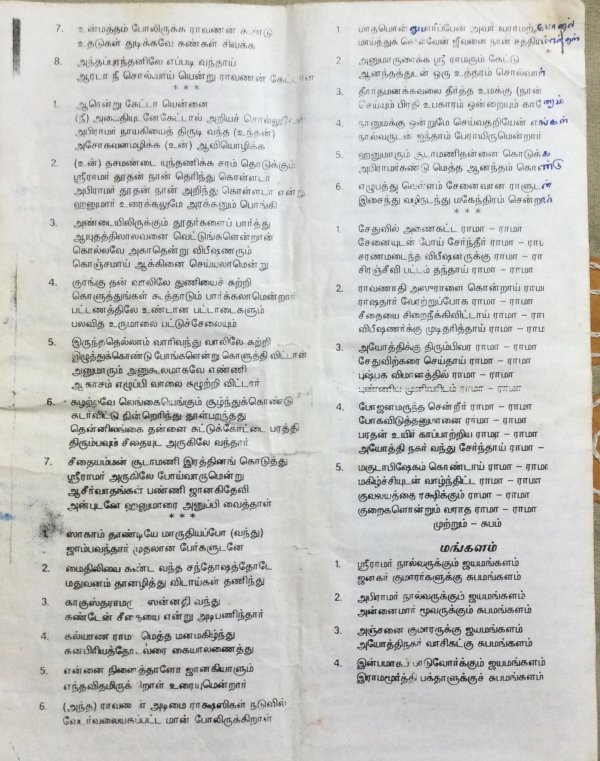 7. உன்மத்தம் போலிருக்க ராவணன் கண்டு
உதடுகள் துடிக்கவே கண்கள் சிவக்க
8. அந்தப்புரந்தனிலே எப்படி வந்தாய்
ஆரடா நீ சொல்வாய் யென்று ராவணன் கேட்டான்
* * *
1. ஆரென்று கேட்டா யென்னை
(நீ) அமைதியுடனேகேட்டால் அறியச் சொல்லுவேன்
அபிராமர் நாயகியைத் திருடி வந்த (உந்தன்)
அசோகவனமழிக்க (உன்) ஆவியொழிக்க
2. (உன்) தசமண்டை யுந்தணிக்க சரம் தொடுக்கும்
ஸ்ரீராமர் தூதன் நான் தெரிந்து கொள்ளடா
அபிராமர் தூதன் நான் அறிந்து கொள்ளடா என்று
ஹனுமார் உரைக்கலுமே அரக்கனும் பொங்கி
3. அண்டையிலிருக்கும் தூதர்களைப் பார்த்து
ஆயுதத்திலாலவனை வெட்டுங்களென்றான்
கொல்லவே அகாதென்று விபீஷணரும்
கொஞ்சமாய் ஆக்கினை செய்யலாமென்று
4. குரங்கு தன் வாலிலே துணியைச் சுற்றி
கொளுத்துங்கள் கூத்தாடும் பார்க்கலாமென்றார்
பட்டணத்திலே உண்டான பட்டாடைகளும்
பலவித உருமாலை பட்டுச்சேலையும்
5. இருந்ததெல்லாம் வாரிவந்து வாலிலே சுற்றி
இழுத்துக்கொண்டு போங்களென்று கொளுத்தி விட்டான்
அனுமாரும் அனுகூலமாகவே எண்ணி
ஆகாசம் எழுப்பி வாலை சுழற்றி விட்டார்
6. சுழற்றவே லெங்கையெங்கும் சூழ்ந்துக்கொண்டு
சுடர்விட்டு நின்றெரிந்து தூள்பறந்தது
தென்னிலங்கை தன்னை சுட்டுக்கோட்டை பரத்தி
திரும்பவும் சீதையுட அருகிலே வந்தார்
7. சீதையம்மன் சூடாமணி இரத்தினங் கொடுத்து
ஸ்ரீராமர் அருகிலே போய்வாருமென்று
ஆசீர்வாதங்கள் பண்ணி ஜானகிதேவி
அன்புடனே ஹனுமாரை அனுப்பி வைத்தாள்
* * *
1. ஸாகரம் தாண்டியே மாருதியப்போ (வந்து)
ஜாம்பவந்தார் முதலான பேர்களுடனே
2. மைதிலியை கண்ட வந்த சந்தோஷத்தோடே
மதுவனம் தானழித்து விடாய்கள் தணிந்து
3. காகுஸ்தராமர் ஸன்னதி வந்து
கண்டேன் சீதையை என்று அடிபணிந்தார்
4. கல்யாண ராமர் மெத்த மனமகிழ்ந்து
கனபிரியத்தோடவரை கையாலணைத்து
5. என்னை நினைத்தாளோ ஜானகியாளும்
எந்தவிதமிருக்கிறாள் உரையுமென்றார்
6. (அந்த) ராவணன் அடிமை ராக்ஷஸிகள் நடுவில்
வேடர்வலையகப்பட்ட மான் போலிருக்கிறாள்
1. மாதமொன்
மாய்த்துக் கொள்வேன் ஜீவனை நான்
2. அனுமாருரைக்க ஸ்ரீ ராமரும் கேட்டு
ஆனந்தத்துடன் ஒரு உத்தரம் சொல்வார்
3. தீராதமனக்கவலை தீர்த்த உமக்கு (நான்
செய்யும் பிரதி உபகாரம் ஒன்றையும் காணேம்
4. நானுமக்கு ஒன்றுமே செய்வதறியேன் எங்கள்
நால்வருடன் ஐந்தாம் பேராயிருமென்றார்
5. ஹனுமாரும் சூடாமணிதன்னை கொடுக்க
அபிராமர்கண்டு மெத்த ஆனந்தம் கொண்டு
6. எழுபத்து வெள்ளம் சேனைவானராளுடன்
இசைந்து வழிநடந்து மகேந்திரம் சென்றார்
* * *
1. சேதுவில் அணைகட்ட ராமா – ராமா
சேனையுடன் போய் சேர்ந்தீர் ராமா – ராமா
சரணமடைந்த விபீஷனருக்கு ராமா – ராமா
சிரஞ்சீவி பட்டம் தந்தாய் ராமா – ராமா
2. ராவணாதி அஸுராளை கொன்றாய் ராமா
ராஷதார் வேரற்றுப்போக ராமா – ராமா
சீதையை சிறைநீக்கிவிட்டாய் ராமா – ராமா
விபீஷணர்க்கு முடிதரித்தாய் ராமா – ராமா
3. அயோத்திக்கு திரும்பிவர ராமா – ராமா
சேதுவிற்கரை செய்தாய் ராமா – ராமா
புஷ்பக விமானத்தில் ராமா – ராமா
புண்ணிய முனிவரிடம் ராமா – ராமா
4. போஜனமருந்த சென்றீர் ராமா – ராமா
போகவிடுத்தனுமானை ராமா – ராமா
பரதன் உயிர் காப்பாற்றிய ராமா – ராமா
அயோத்தி நகர் வந்து சேர்ந்தாய் ராமா – ராமா
5. மகுடாபிஷேகம் கொண்டாய் ராமா – ராமா
மகிழ்ச்சியுடன் வாழ்ந்திட்ட ராமா – ராமா
குவலயத்தை ரக்ஷிக்கும் ராமா – ராமா
குறைகளொன்றும் வராத ராமா – ராமா
முற்றும் – சுபம்
மங்களம்
1. ஸ்ரீராமர் நால்வருக்கும் ஜயமங்களம்
ஜனகர் குமாரர்களுக்கு சுபமங்களம்
2. அபிராமர் நால்வருக்கும் ஜயமங்களம்
அன்னைமார் மூவருக்கும் சுபமங்களம்
3. அஞ்சனை குமாரருக்கு ஜயமங்களம்
அயோத்திநகர் வாசிகட்கு சுபமங்களம்
4. இன்பமாகப்பாடுவோர்க்கும் ஜயமங்களம்
இராமமூர்த்தி பக்தாளுக்குச் சுபமங்களம்